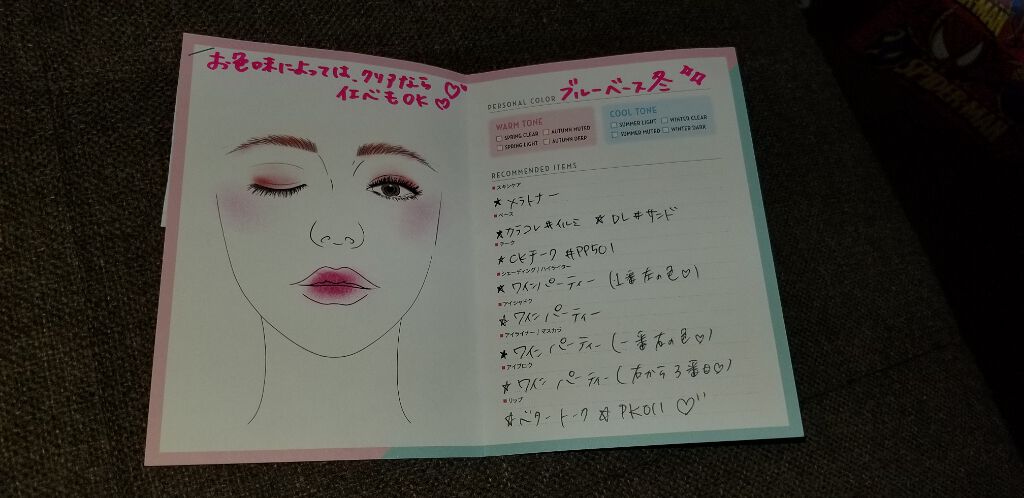 お色味によっては、クリアなら
イエベもOK♡♡
PERSONAL COLOR ブルーベース冬
WARM TONE
□ SPRING CLEAR □ AUTUMN MUTED
□ SPRING LIGHT □ AUTUMN DEEP
COOL TONE
□ SUMMER LIGHT □ WINTER CLEAR
□ SUMMER MUTED □ WINTER DARK
RECOMMENDED ITEMS
スキンケア
☆ メラトナー
ベース
☆カラコレ#イルミ ☆ DL#サンド
チーク
☆ CKチーク #PP501
シェーディング/ハイライター
☆ ワインパーティー (1番左の色♡)
アイシャドウ
☆ ワインパーティー
アイライナー/マスカラ
☆ ワインパーティー (一番右の色♡)
アイブロウ
☆ ワインパーティー (右から3番目♡)
リップ
☆ベタートーク☆ PK011 ♡
SPIDER-MAN